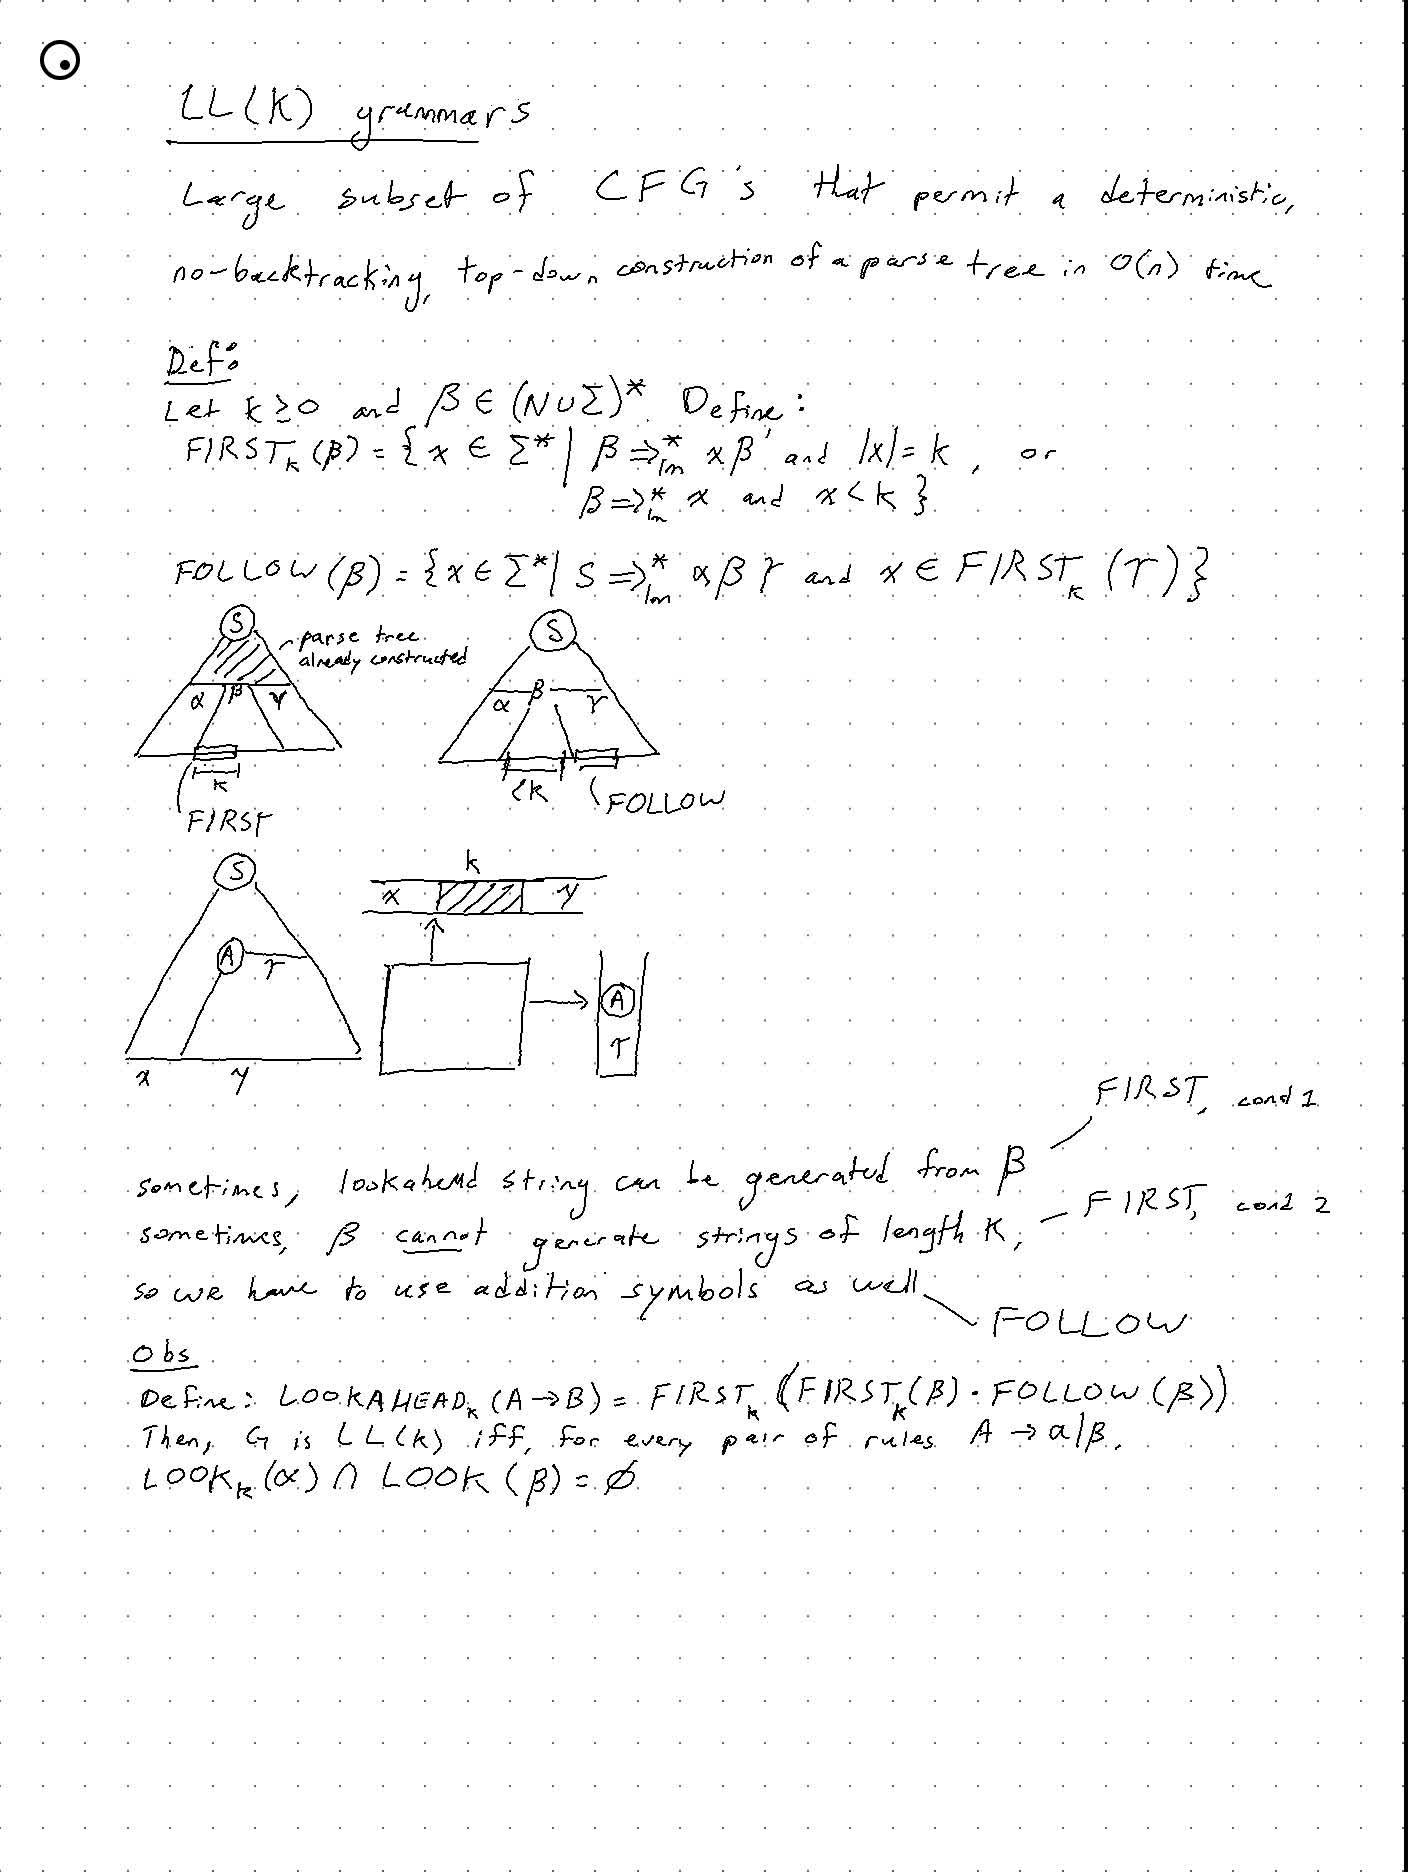 LL(K) grammars
Large subset of CFG's that permit a deterministic,
no-backtracking, top-down construction of a parse tree in O(n) time
Def:
Let k ≥ 0 and β ∈ (N ∪ Σ)* Define:
FIRSTₖ(β) = {x ∈ Σ* | β ⇒*ₗₘ xβ' and |x| = k, or
β ⇒*ₗₘ x and x < k}
FOLLOW(β) = {x ∈ Σ* | S ⇒*ₗₘ αβγ and x ∈ FIRSTₖ(γ)}
S
parse tree
already constructed
α β γ
k
FIRST
S
α β γ
<k
FOLLOW
S
A γ
x y
k
x y
A
γ
FIRST, cond 1
sometimes, lookahead string can be generated from β
FIRST, cond 2
sometimes, β cannot generate strings of length K,
so we have to use addition symbols as well
FOLLOW
Obs
Define: LOOKAHEADₖ(A → B) = FIRSTₖ(FIRSTₖ(β) · FOLLOW(β))
Then, G is LL(k) iff, for every pair of rules A → α|β,
LOOKₖ(α) ∩ LOOK(β) = ∅